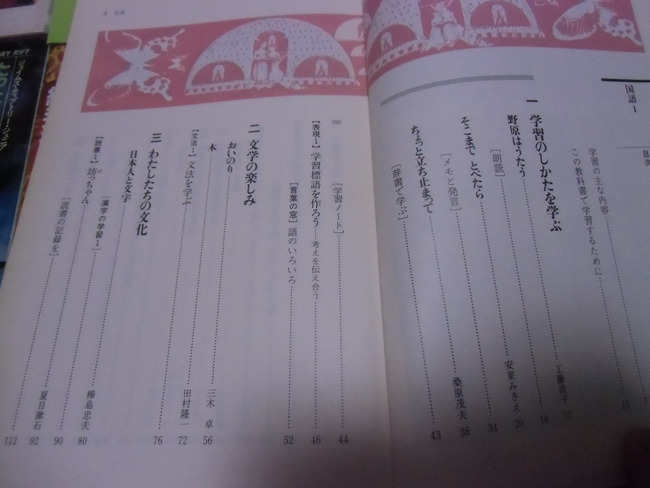 国語 1
学習の主な内容
この教科書で学習するために
一 学習のしかたを学ぶ
野原はうたう 工藤直子 18
[朗読] 20
そこまで とべたら 安東みきえ
[メモと発言] 34
ちょっと立ち止まって 桑原茂夫 36
[辞書で学ぶ] 43
[学習ノート] 44
【表現1】学習標語を作ろう 考えを伝え合う 46
[言葉の窓] 語のいろいろ 52
二 文学の楽しみ
おいのり 三木 卓 56
木 田村隆一 72
[文法1] 文法を学ぶ 76
三 わたしたちの文化
日本人と文字 樺島忠夫 80
[漢字の学習1] 90
【読書1】坊っちゃん 夏目漱石 92
[読書の記録を] 112